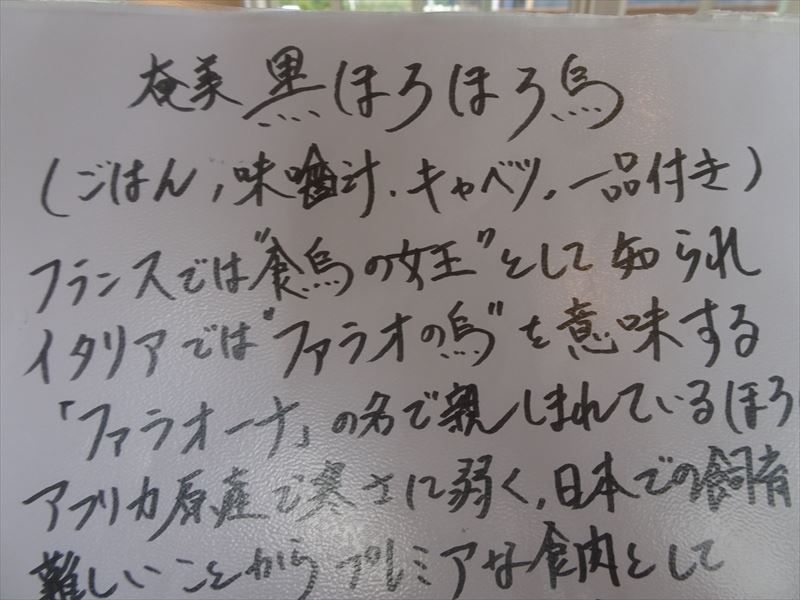 奄美 黒ほろほろ鳥
(ごはん,味噌汁.キャベツ.一品付き)
フランスでは"食鳥の女王"として知られ
イタリアでは"ファラオの鳥"を意味する
「ファラオーナ」の名で親しまれているほろ
アフリカ原産で寒さに弱く,日本での飼育
難しいことからプレミアな食肉として